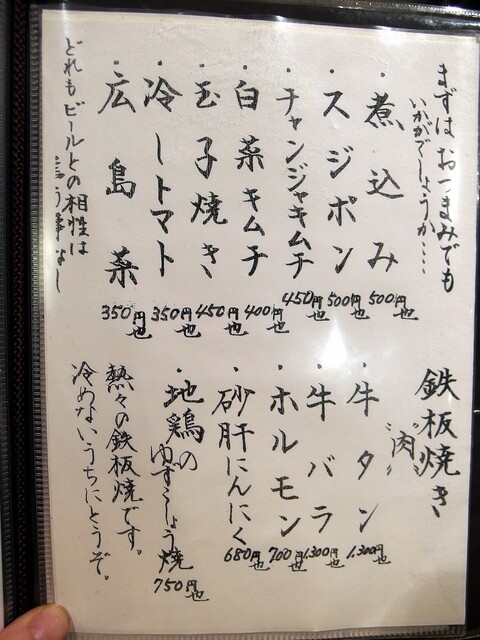 まずは お一まみでも
いかがでしょうか….
・煮込み 500円也
・スジポン 500円也
・チャンジャキムチ 450円也
・白菜キムチ 400円也
・玉子焼き 450円也
・冷しトマト 350円也
・広島菜 350円也
どれもビールとの相性は
言う事なし
鉄板焼き
"肉"
・牛タン 1,300円也
・牛バラ 1,300円也
・ホルモン 700円也
・砂肝にんにく 680円也
・地鶏の
ゆずこしょう焼 750円也
熱々の鉄板焼です。
冷めないうちにどうぞ。